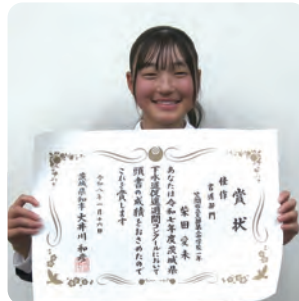 賞状
佳作
書道部門
柴田 愛来
あなたは令和七年度茨城県
下水道促進週間コンクールにおいて
頭書の成績をおさめたので
これを賞します
令和八年一月十六日
茨城県知事 大井川 和彦